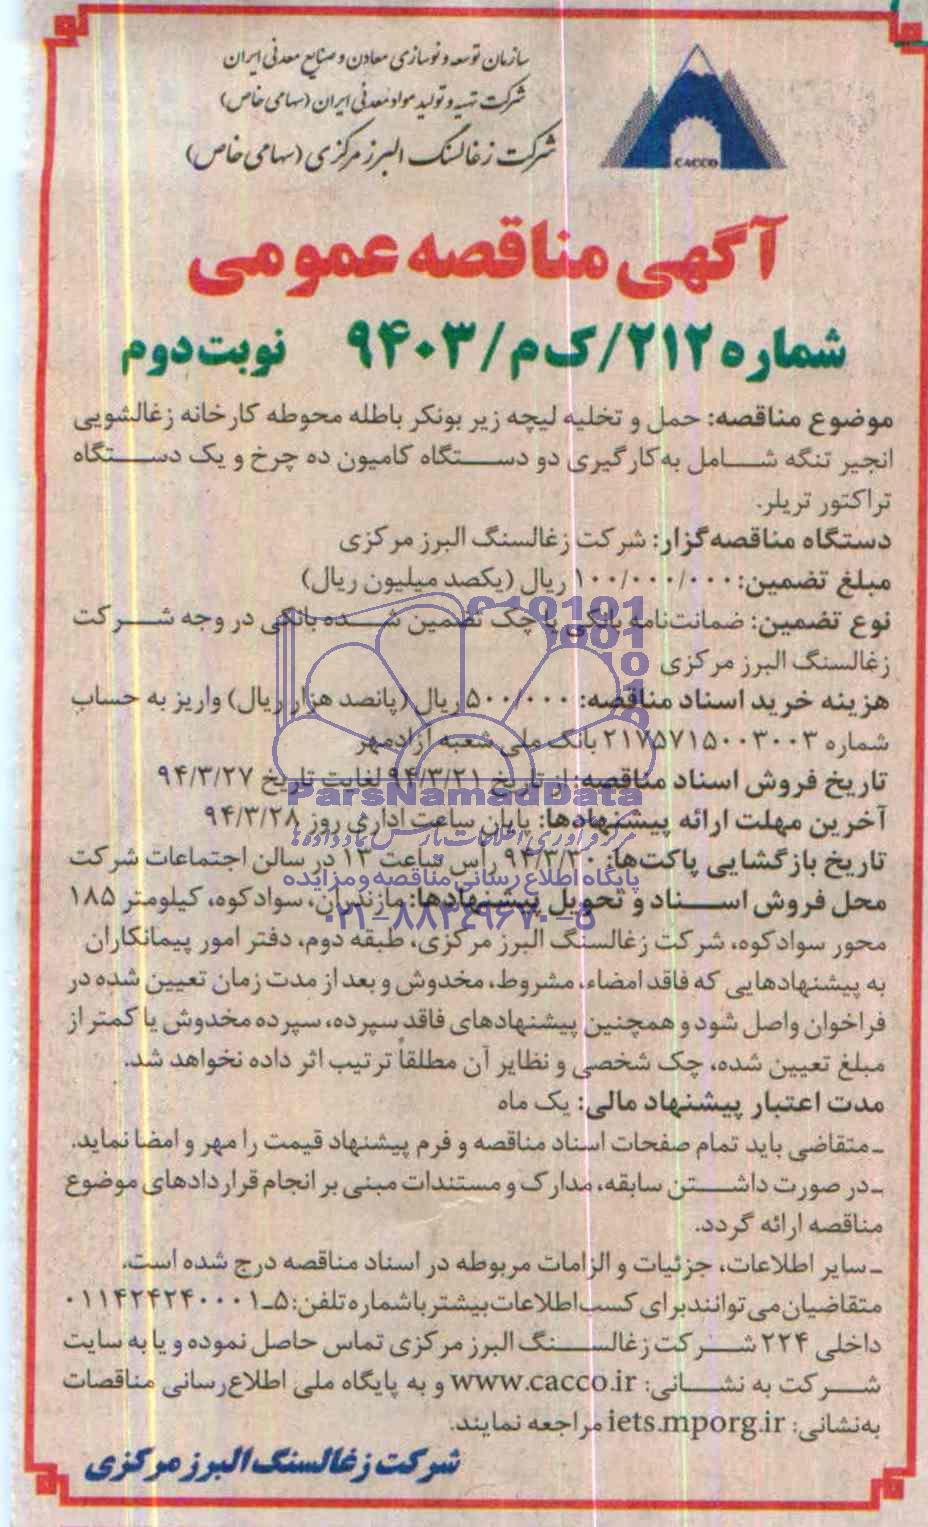 سازمان توسعه و نوسازی معادن و صنایع معدنی ایران
شرکت تهیه و تولید مواد معدنی ایران (سهامی خاص)
شرکت زغالسنگ البرز مرکزی (سهامی خاص)
CACCO
آگهی مناقصه عمومی
شماره ۲۱۲/ک م/۹۴۰۳ نوبت دوم
موضوع مناقصه: حمل و تخلیه لیچه زیر بونکر باطله محوطه کارخانه زغالشویی
انجیر تنگه شامل به‌کارگیری دو دستگاه کامیون ده چرخ و یک دستگاه
تراکتور تریلر.
دستگاه مناقصه‌گزار: شرکت زغالسنگ البرز مرکزی
مبلغ تضمین: ۱۰۰/۰۰۰/۰۰۰ ریال (یکصد میلیون ریال)
نوع تضمین: ضمانت‌نامه بانکی یا چک تضمین شده بانکی در وجه شرکت
زغالسنگ البرز مرکزی
هزینه خرید اسناد مناقصه: ۵۰۰/۰۰۰ ریال (پانصد هزار ریال) واریز به حساب
شماره ۲۱۷۵۷۱۵۰۰۳۰۰۳ بانک ملی شعبه آزادمهر
تاریخ فروش اسناد مناقصه: از تاریخ ۹۴/۳/۲۱ لغایت تاریخ ۹۴/۳/۲۷
ParsNamadData
آخرین مهلت ارائه پیشنهادها: پایان ساعت اداری روز ۹۴/۳/۲۸
مرکز فرآوری اطلاعات پارس نماد داده‌ها
تاریخ بازگشایی پاکت‌ها: ۹۴/۳/۳۰ رأس ساعت ۱۳ در سالن اجتماعات شرکت
پایگاه اطلاع رسانی مناقصه و مزایده
محل فروش اسناد و تحویل پیشنهادها: مازندران، سوادکوه، کیلومتر ۱۸۵
۰۲۱-۸۸۳۴۹۶۷۰-۵
محور سوادکوه، شرکت زغالسنگ البرز مرکزی، طبقه دوم، دفتر امور پیمانکاران
به پیشنهادهایی که فاقد امضاء، مشروط، مخدوش و بعد از مدت زمان تعیین شده در
فراخوان واصل شود و همچنین پیشنهادهای فاقد سپرده، سپرده مخدوش یا کمتر از
مبلغ تعیین شده، چک شخصی و نظایر آن مطلقاً ترتیب اثر داده نخواهد شد.
مدت اعتبار پیشنهاد مالی: یک ماه
ـ متقاضی باید تمام صفحات اسناد مناقصه و فرم پیشنهاد قیمت را مهر و امضا نماید.
ـ در صورت داشتن سابقه، مدارک و مستندات مبنی بر انجام قراردادهای موضوع
مناقصه ارائه گردد.
ـ سایر اطلاعات، جزئیات و الزامات مربوطه در اسناد مناقصه درج شده است.
متقاضیان می‌توانند برای کسب اطلاعات بیشتر با شماره تلفن: ۵ـ۰۱۱۴۲۴۲۴۰۰۰۱
داخلی ۲۲۴ شرکت زغالسنگ البرز مرکزی تماس حاصل نموده و یا به سایت
شرکت به نشانی: www.cacco.ir و به پایگاه ملی اطلاع‌رسانی مناقصات
به‌نشانی: iets.mporg.ir مراجعه نمایند.
شرکت زغالسنگ البرز مرکزی